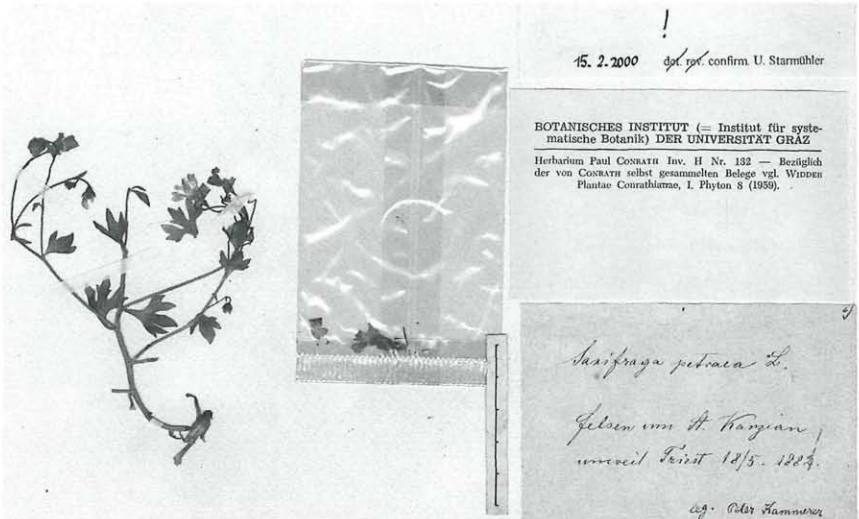 !
15. 2. 2000 det. rev. confirm. U. Starmühler
BOTANISCHES INSTITUT (= Institut für syste-
matische Botanik) DER UNIVERSITÄT GRAZ
Herbarium Paul CONRATH Inv. H Nr. 132 — Bezüglich
der von CONRATH selbst gesammelten Belege vgl. WIDDER
Plantae Conrathianae, I. Phyton 8 (1959).
Saxifraga petraea L.
felsen um St. Kanzian,
unweit Triest 18/5. 
leg. Peter Kammerer